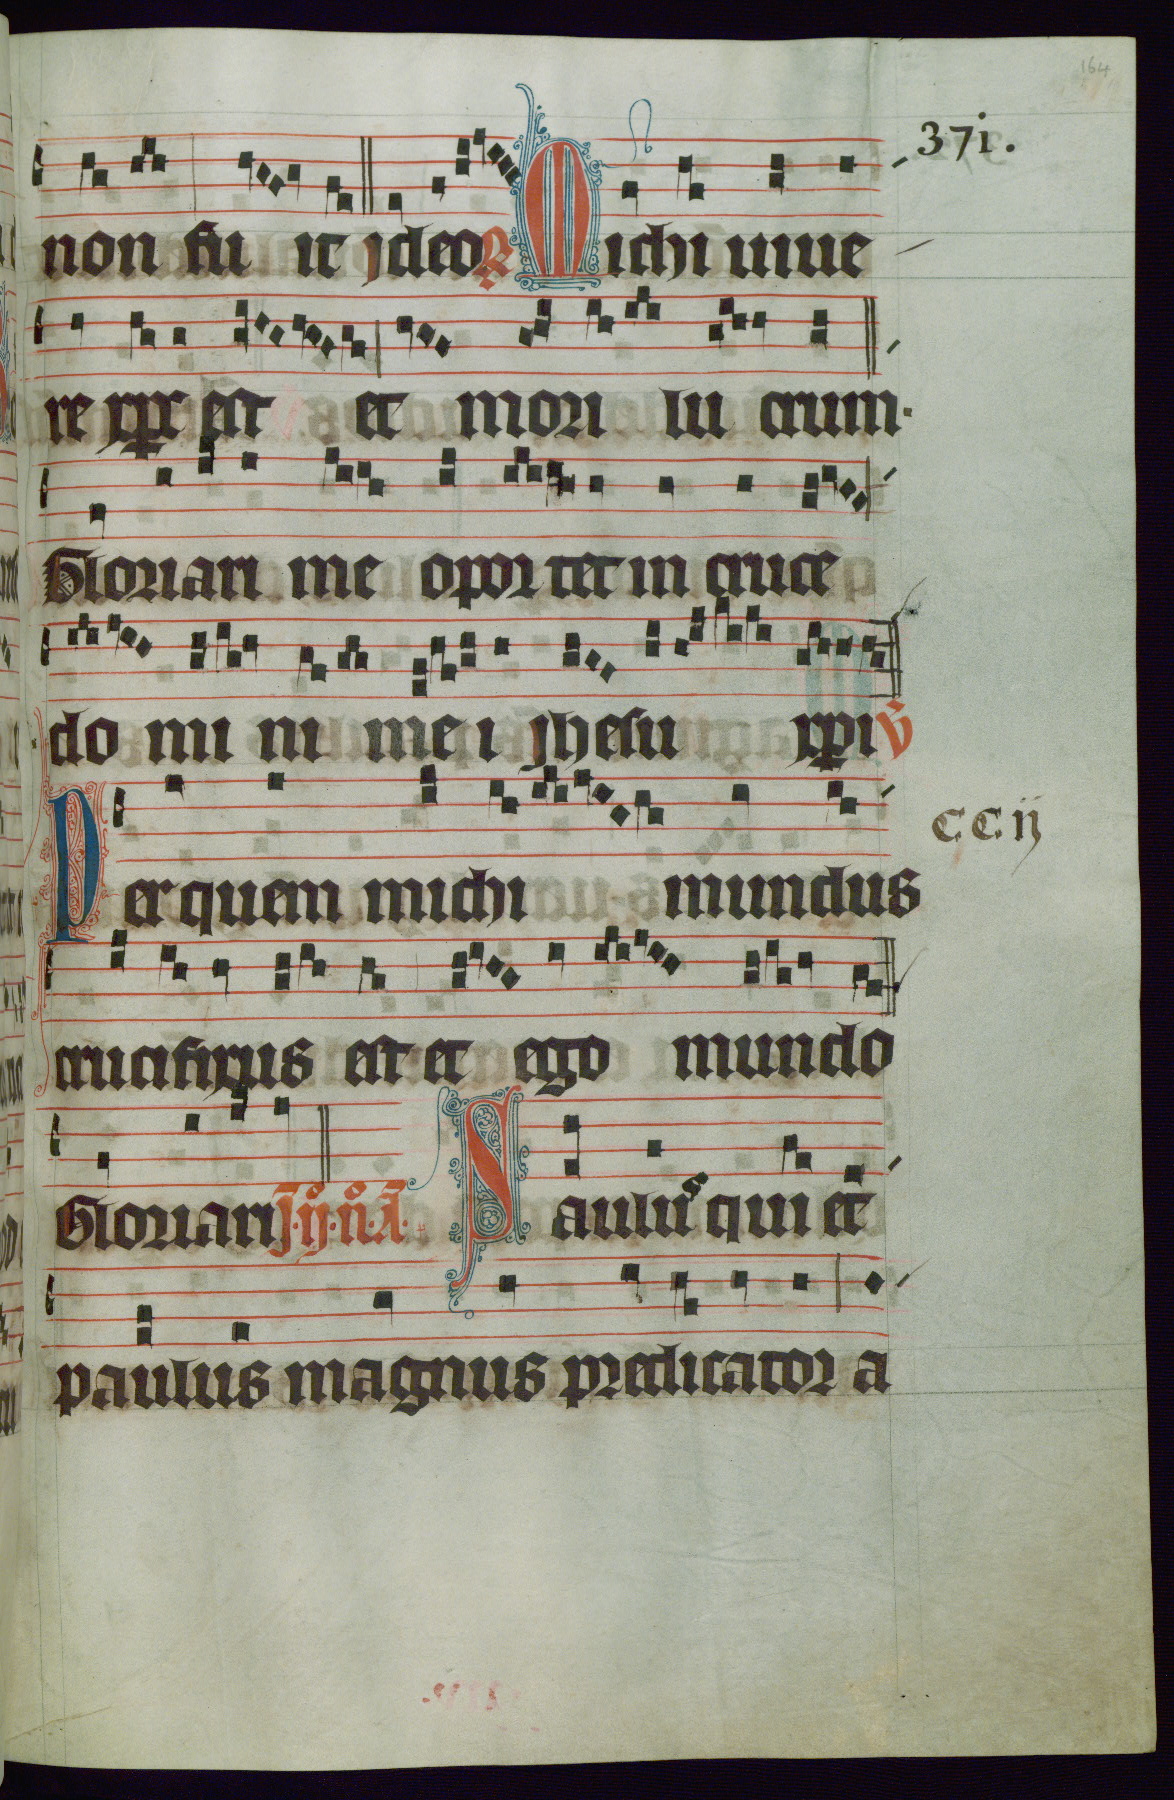 164
37i.
non fu it jdeo ℟ Michi uiue
re xpc est et mori lu crum.
Gloriari me opor tet in cruce
do mi ni me i jhesu xpi ℣
Per quem michi mundus
CCij
crucifixus est et ego mundo
Gloriari Paulus qui et
paulus magnus predicator a